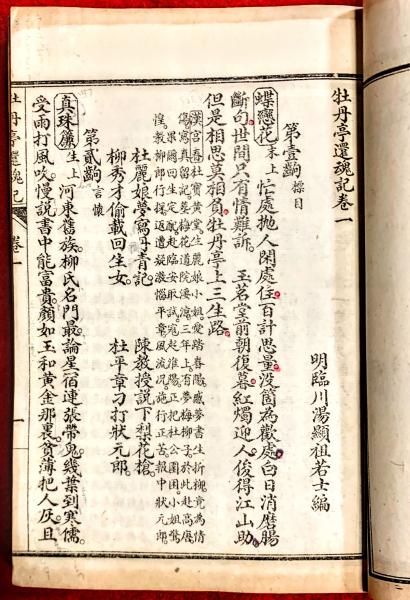 牡丹亭還魂記卷一
明臨川湯顯祖若士編
第壹齣 標目
蝶戀花 末上 忙處拋人閑處住。百計思量。沒箇為歡處。白日消磨腸
斷句。世間只有情難訴。 玉茗堂前朝復暮。紅燭迎人。俊得江山助。
但是相思莫相負。牡丹亭上三生路。
漢宮春 杜寶黃堂。生麗娘小姐。愛踏春陽。感夢書生折柳。竟為情
傷。寫真留記。葬梅花道院淒涼。三年上有夢梅柳子。於此赴高唐
果爾回生定配。赴臨安取試。寇起淮陽。正把杜公圍困。小姐驚
惶。教柳郎行探。返遭疑激惱平章。風流況。施行正苦。報中狀元郎。
杜麗娘夢寫丹青記。 陳教授說下梨花槍。
柳秀才偷載回生女。 杜平章刁打狀元郎。
第貳齣 言懷
真珠簾 生上 河東舊族。柳氏名門最。論星宿連張帶鬼。幾葉到寒儒。
受雨打風吹。慢說書中能富貴。顏如玉和黃金那裏。貧薄把人灰。且
牡丹亭還魂記 卷一 一